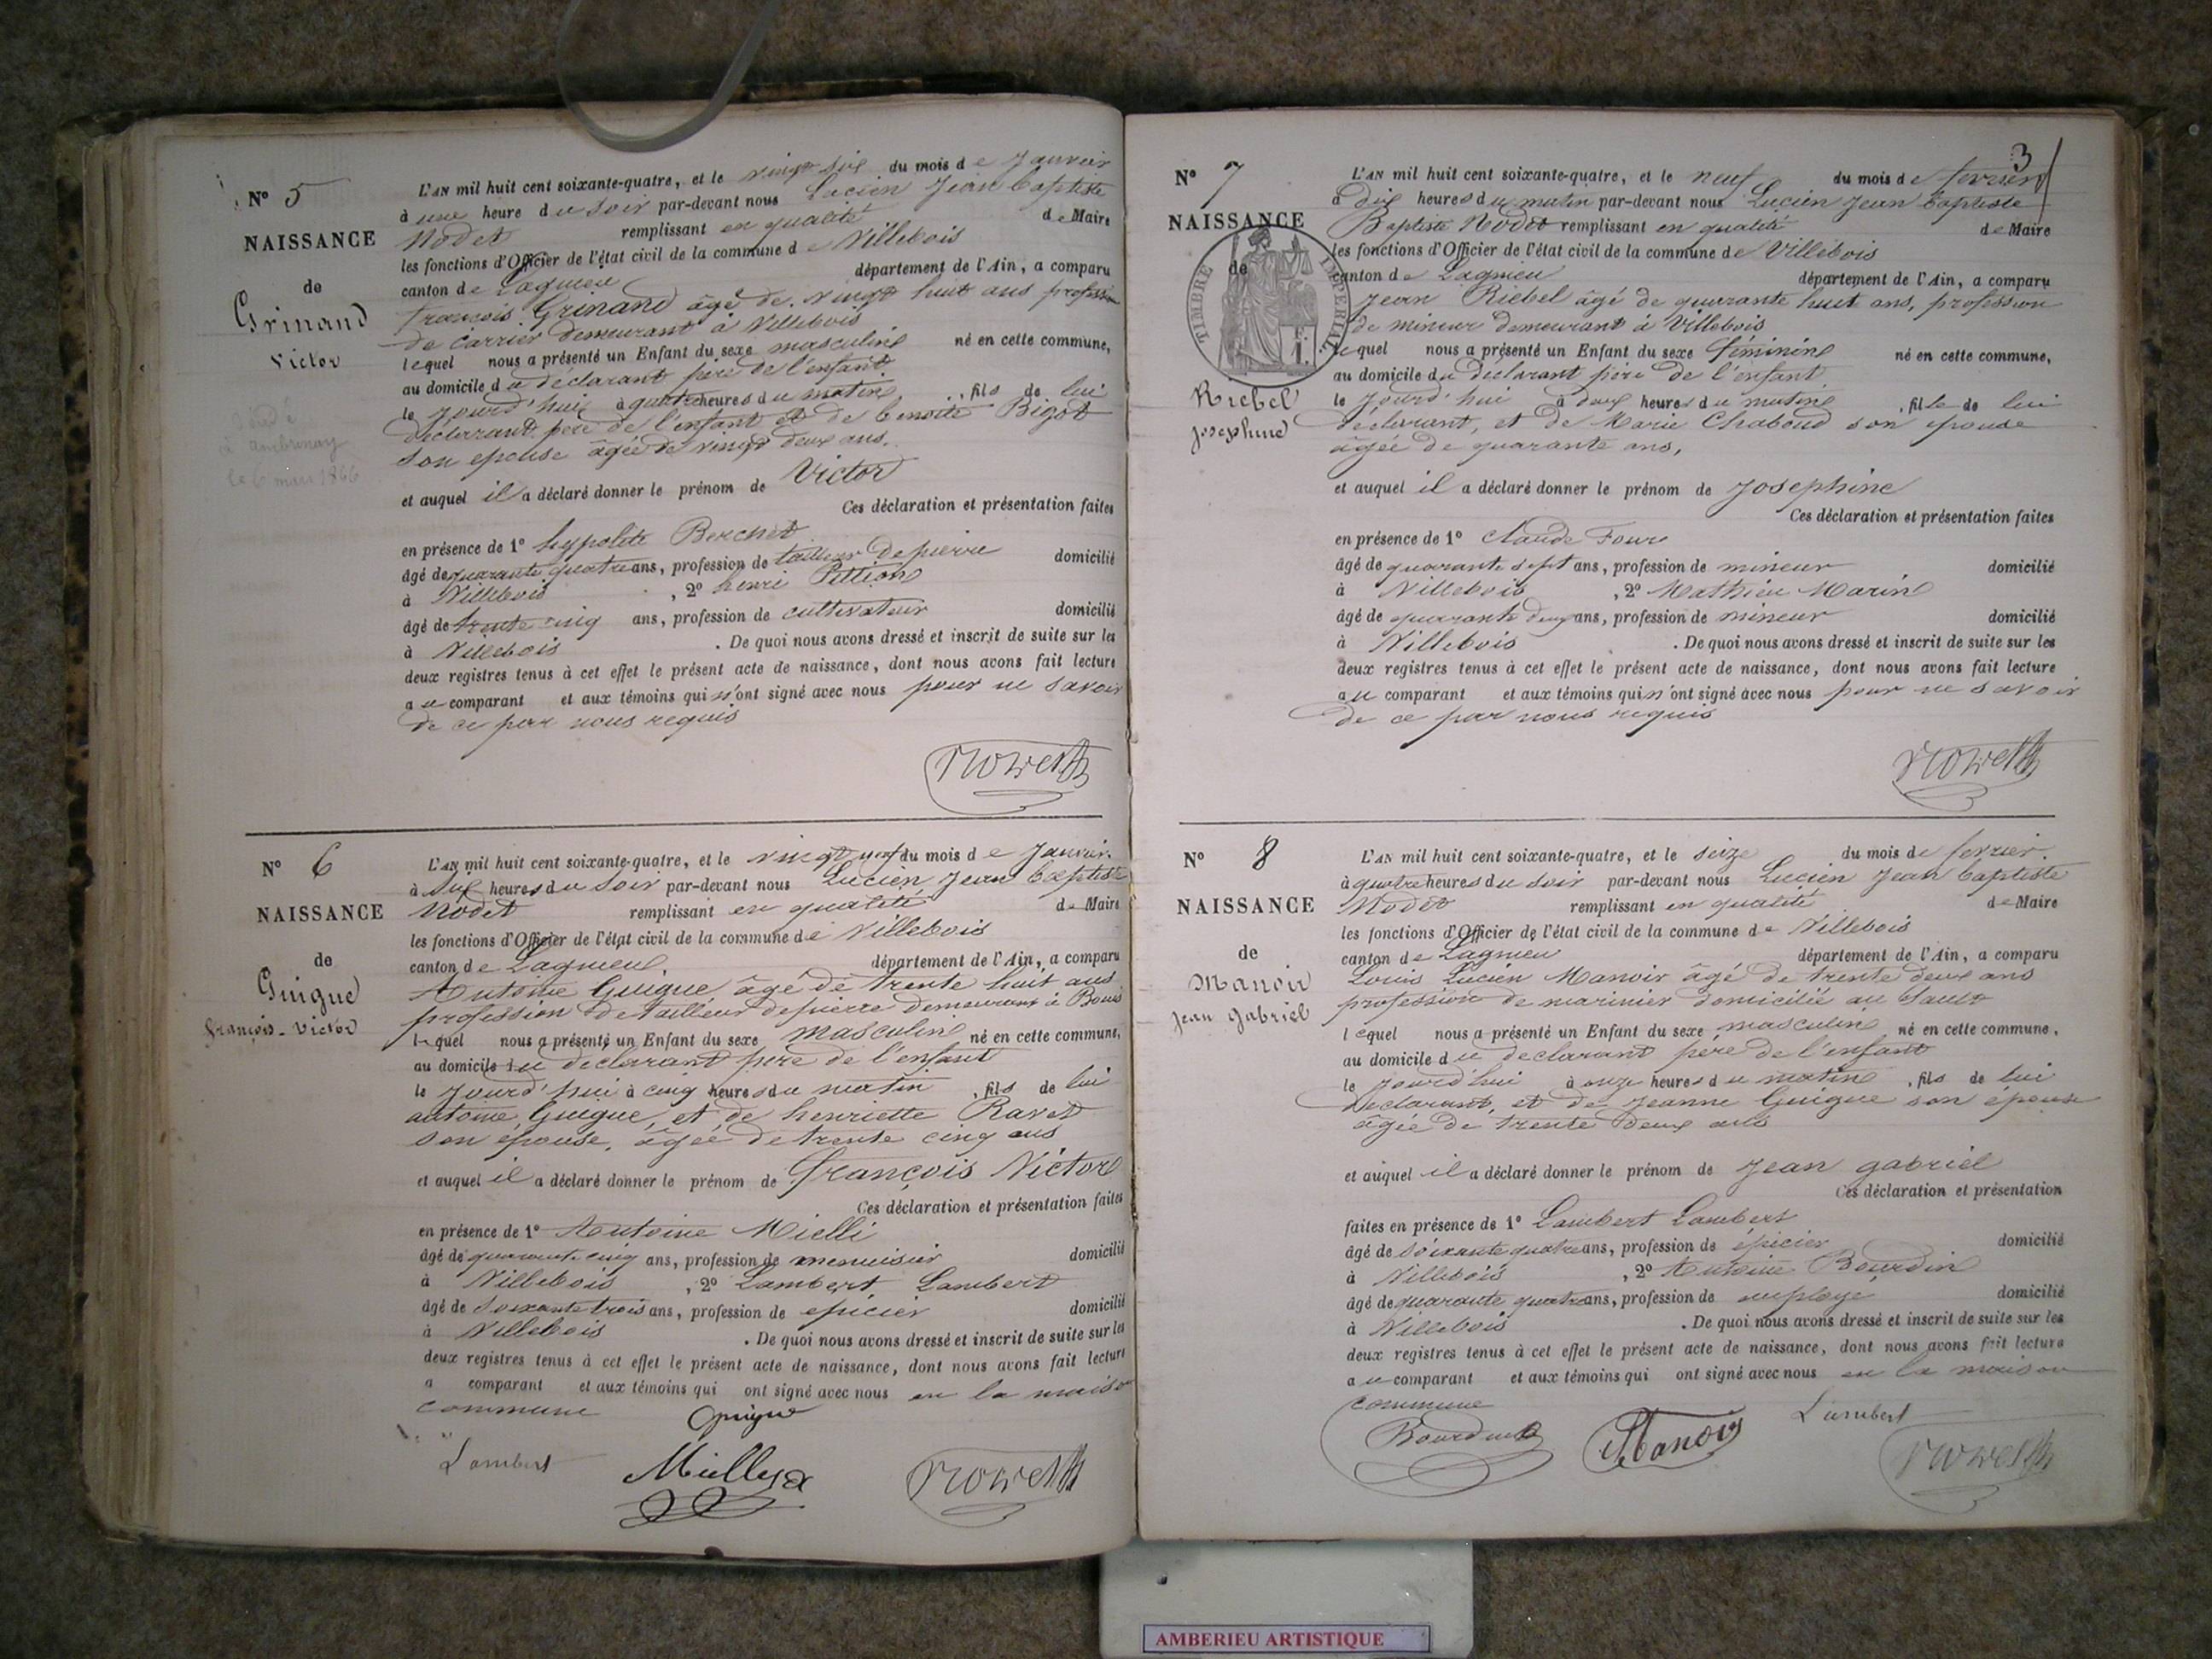 N° 5
NAISSANCE
de
Grinand
Victor
à Ambronay
le 6 mars 1866
L'AN mil huit cent soixante-quatre, et le vingt six du mois de Janvier
à une heure du soir par-devant nous Lucien Jean Baptiste
Nodet remplissant en qualité de Maire
les fonctions d'Officier de l'état civil de la commune de Villebois
canton de Lagnieu département de l'Ain, a comparu
françois Grinand âgé de vingt huit ans profession
de carrier demeurant à Villebois
lequel nous a présenté un Enfant du sexe masculin né en cette commune,
au domicile du déclarant père de l'enfant
le jourd'hui à quatre heures du matin, fils de lui
déclarant père de l'enfant et de benoite Bigot
son epouse âgée de vingt deux ans.
et auquel il a déclaré donner le prénom de Victor
Ces déclaration et présentation faites
en présence de 1° hypolite Berchet
âgé de quarante quatre ans, profession de tailleur de pierre domicilié
à Villebois, 2° henri Pettion
âgé de trente cinq ans, profession de cultivateur domicilié
à Villebois. De quoi nous avons dressé et inscrit de suite sur les
deux registres tenus à cet effet le présent acte de naissance, dont nous avons fait lecture
au comparant et aux témoins qui n'ont signé avec nous pour ne savoir
de ce par nous requis
N° 6
NAISSANCE
de
Guigue
françois-Victor
L'AN mil huit cent soixante-quatre, et le vingt neuf du mois de Janvier.
à six heures du soir par-devant nous Lucien Jean baptiste
Nodet remplissant en qualité de Maire
les fonctions d'Officier de l'état civil de la commune de Villebois
canton de Lagnieu. département de l'Ain, a comparu
Antoine Guigue âgé de trente huit ans
profession de tailleur de pierre demeurant à Bouis
lequel nous a présenté un Enfant du sexe masculin né en cette commune,
au domicile du déclarant père de l'enfant
le jourd'hui à cinq heures du matin, fils de lui
antoine Guigue, et de henriette Ravet
son epouse, âgée de trente cinq ans
et auquel il a déclaré donner le prénom de françois Victor
Ces déclaration et présentation faites
en présence de 1° Antoine Mielli
âgé de quarante cinq ans, profession de menuisier domicilié
à Villebois, 2° Lambert Lambert
âgé de soixante trois ans, profession de epicier domicilié
à Villebois. De quoi nous avons dressé et inscrit de suite sur les
deux registres tenus à cet effet le présent acte de naissance, dont nous avons fait lecture
a comparant et aux témoins qui ont signé avec nous en la maison
commune Guigue
Lambert
3
N° 7
NAISSANCE
de
TIMBRE IMPERIAL
Riebel
Josephine
L'AN mil huit cent soixante-quatre, et le neuf du mois de fevrier
à dix heures du matin par-devant nous Lucien Jean baptiste
Baptiste Nodet remplissant en qualité de Maire
les fonctions d'Officier de l'état civil de la commune de Villebois
canton de Lagnieu département de l'Ain, a comparu
Jean Riebel âgé de quarante huit ans, profession
de mineur demeurant à Villebois
lequel nous a présenté un Enfant du sexe féminin né en cette commune,
au domicile du déclarant père de l'enfant
le jourd'hui à deux heures du matin, fille de lui
déclarant, et de Marie Chaboud son epouse
âgée de quarante ans,
et auquel il a déclaré donner le prénom de Josephine
Ces déclaration et présentation faites
en présence de 1° Claude Four
âgé de quarante sept ans, profession de mineur domicilié
à Villebois, 2° Mathieu Marin
âgé de quarante deux ans, profession de mineur domicilié
à Villebois. De quoi nous avons dressé et inscrit de suite sur les
deux registres tenus à cet effet le présent acte de naissance, dont nous avons fait lecture
au comparant et aux témoins qui n'ont signé avec nous pour ne savoir
de ce par nous requis
N° 8
NAISSANCE
de
Manoir
Jean gabriel
L'AN mil huit cent soixante-quatre, et le seize du mois de fevrier.
à quatre heures du soir par-devant nous Lucien Jean baptiste
Nodet remplissant en qualité de Maire
les fonctions d'Officier de l'état civil de la commune de Villebois
canton de Lagnieu département de l'Ain, a comparu
Louis Lucien Manoir âgé de trente deux ans
profession de marinier domicilié au Sault
lequel nous a présenté un Enfant du sexe masculin né en cette commune,
au domicile du declarant père de l'enfant
le jourd'hui à onze heures du matin, fils de lui
declarant, et de Jeanne Guigue son épouse
âgée de trente deux ans
et auquel il a déclaré donner le prénom de Jean gabriel
Ces déclaration et présentation
faites en présence de 1° Lambert Lambert
âgé de soixante quatre ans, profession de épicier domicilié
à Villebois, 2° Antoine Bourdin
âgé de quarante quatre ans, profession de employé domicilié
à Villebois. De quoi nous avons dressé et inscrit de suite sur les
deux registres tenus à cet effet le présent acte de naissance, dont nous avons fait lecture
au comparant et aux témoins qui ont signé avec nous en la maison
commune
Bourdin Manoir Lambert
AMBERIEU ARTISTIQUE